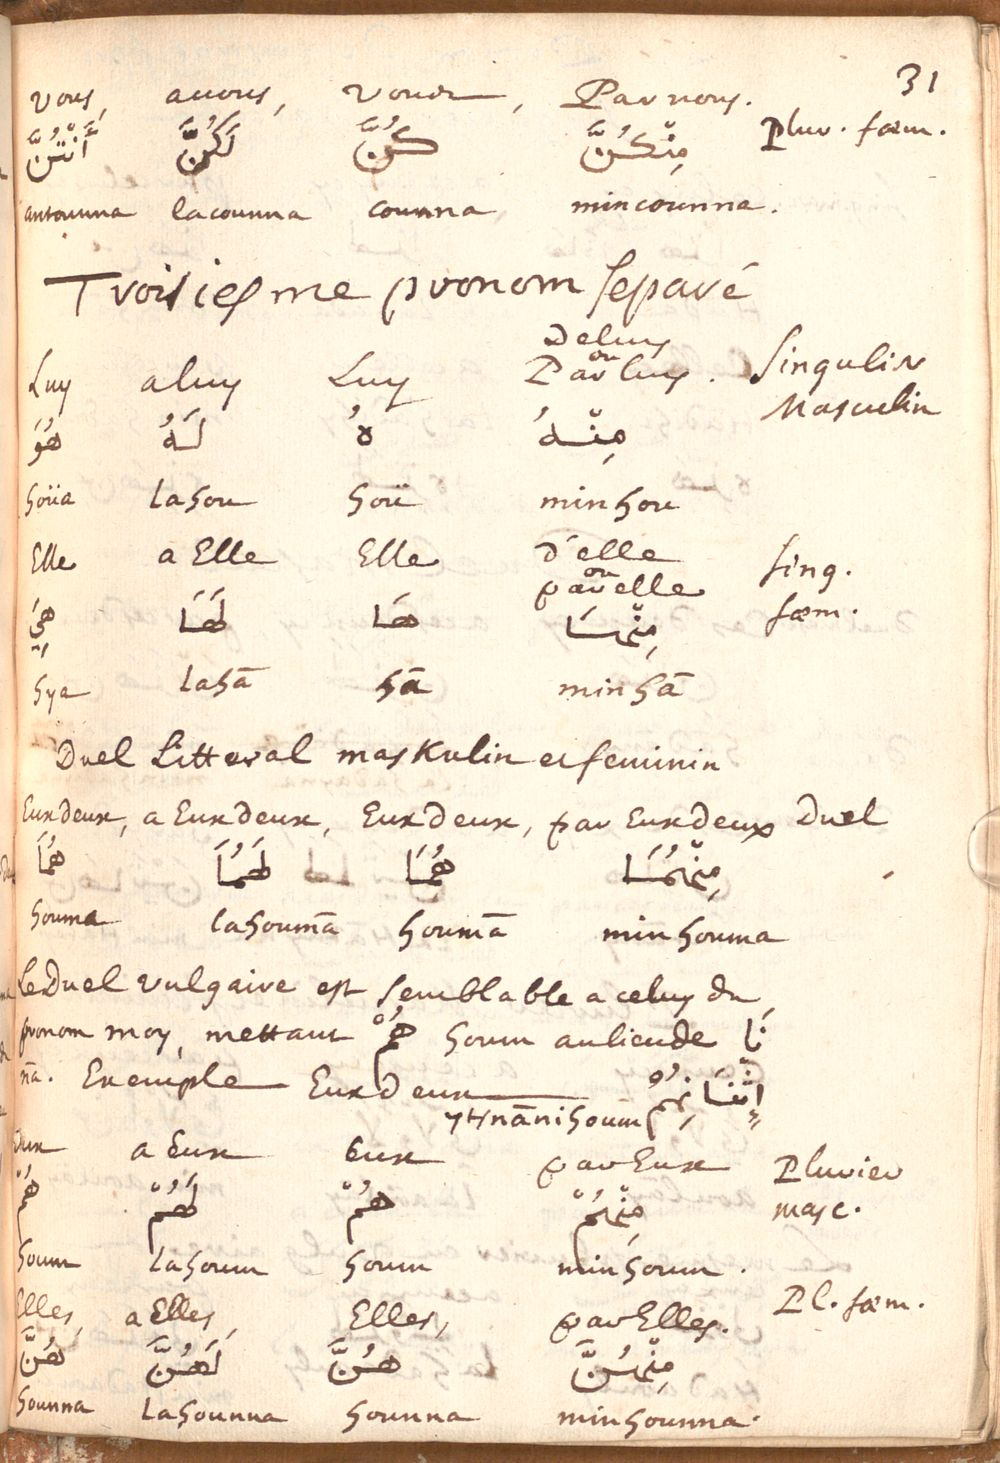 31
Vous, a vous, Vous, Par vous. Plur. fæm.
أَنْتُنَّ لَكُنَّ كُنَّ مِنْكُنَّ
antounna lacounna counna mincounna.
Troisiesme pronom separé
De luy
Luy a luy Luy ou Par luy. Singulier
Masculin
هُوَ لَهُ هُ مِنْهُ
hoüa lahou hoü minhou
Elle a Elle Elle d'elle Sing.
ou par elle fæm.
هِيَ لَهَا هَا مِنْهَا
hya lahā hā minhā
Duel Litteral masKulin et feminin
Eux deux, a Eux deux, Eux deux, par Eux deux Duel
هُمَا لَهُمَا هُمَا مِنْهُمَا
houma lahoumā houmā minhouma
Le Duel vulgaire est semblable a celuy du
pronom moy, mettant هُمْ houm au lieu de نَا
nā. Exemple Eux deux إِثْنَانِهُمْ
ythnānihoum
Eux a Eux Eux par Eux Plurier
هُمْ لَهُمْ هُمْ مِنْهُمْ masc.
houm lahoum houm minhoum.
Elles, a Elles, Elles, par Elles. Pl. fæm.
هُنَّ لَهُنَّ هُنَّ مِنْهُنَّ
hounna lahounna hounna minhounna.